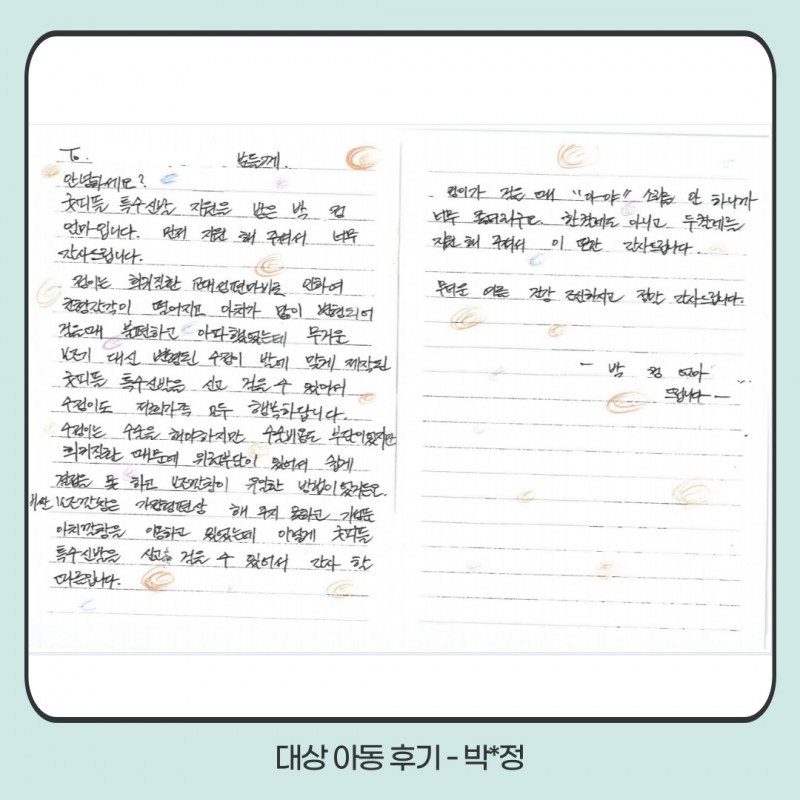 To. 분들께.
안녕하세요?
굿피플 특수신발 지원을 받은 박 정
엄마입니다. 먼저 지원 해 주셔서 너무
감사드립니다.
정이는 희귀질환 인하여
떨어지고 많이 변형되어
걸을때 불편하고 아파했었는데 무거운
보조기 대신 변형된 수정이 발에 맞게 제작된
굿피플 특수신발을 신고 걸을 수 있어서
수정이도 저희가족 모두 행복하답니다.
수정이는 수술을 해야하지만 수술비용도 부담이었지만
희귀질환 때문에 위험부담이 있어서 쉽게
결정을 못 하고 보조깔창이 유일한 방법이었거든요.
비싼 보조깔창은 가정형편상 해 주지 못하고 기성품
아치깔창을 이용하고 있었는데 이렇게 굿피플
특수신발을 신고 걸을 수 있어서 감사 할
따름입니다.
정이가 걸을 때 "아야" 소리를 안 하니까
너무 한켤레도 아니고 두켤레를
지원 해 주셔서 이 또한 감사드립니다.
무더운 여름 건강 조심하시고 정말 감사드립니다.
- 박 정 엄마
드립니다 -
대상 아동 후기 - 박*정